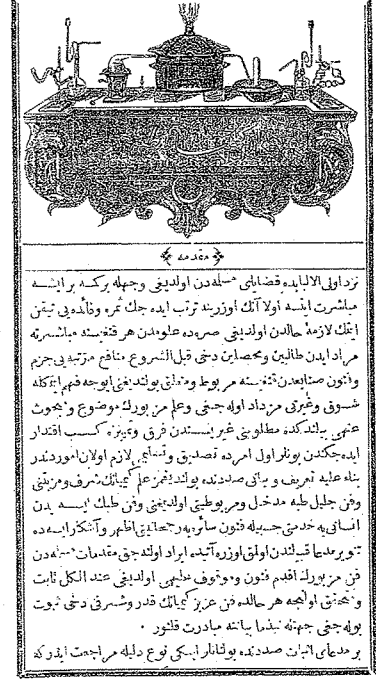 مقدمه
نزد اولی الالبابده قضایای مسلمه دن اولدیغی وجهله بر کمسه بر ایشه
مباشرت ایتسه اولا آنك اوزرینه ترتب ایده جك ثمره وفائده یی تیقن
ایتمك لازمهٔ حالدن اولدیغی صروده علومدن هر قنغیسنه مباشرته
مراد ایدن طالبین ومحصلین دخی قبل الشروع منافع مرتبه یی جزم
وفنون صنایعدن قنغیسنه مربوط ومتعلق بولندیغنی ایوجه فهم ایتمکله
شوق وغیرتی مزداد اوله جغی وعلم مزبورك موضوع ومبحوث
عنهی بیلندکده مطلوبنی غیریسندن فرق وتمییزه کسب اقتدار
ایده جکندن بونلر اول امرده تصدیق وتسلیمی لازم اولان اموردندر
بناء علیه تعریف وبیانی صددنده بولندیغمز علم کیمیانك شرف ومزیتی
وفن جلیل طبه مدخل ومربوطیتی اولدیغی وفن طبك ایسه بدن
انسانی یه خدمتی حسبیله فنون سائره یه رجحانیتی اظهر وآشکار ایسه ده
تنویر مدعا قبیلندن اولمق اوزره آتیده ایراد اولنه جق مقدمات مسلمه دن
فن مزبورك اقدم فنون وموقوف علیهی اولدیغی عند الکل ثابت
ومحقق اولیجه هر حالده فن عزیز کیمیانك قدر وشرفی دخی ثبوت
بوله جغی جهتله نبذما بیاننه مبادرت قلنور ٠
بر مدعای اثبات صددنده بولنانلر ایکی نوع دلیله مراجعت ایدر که